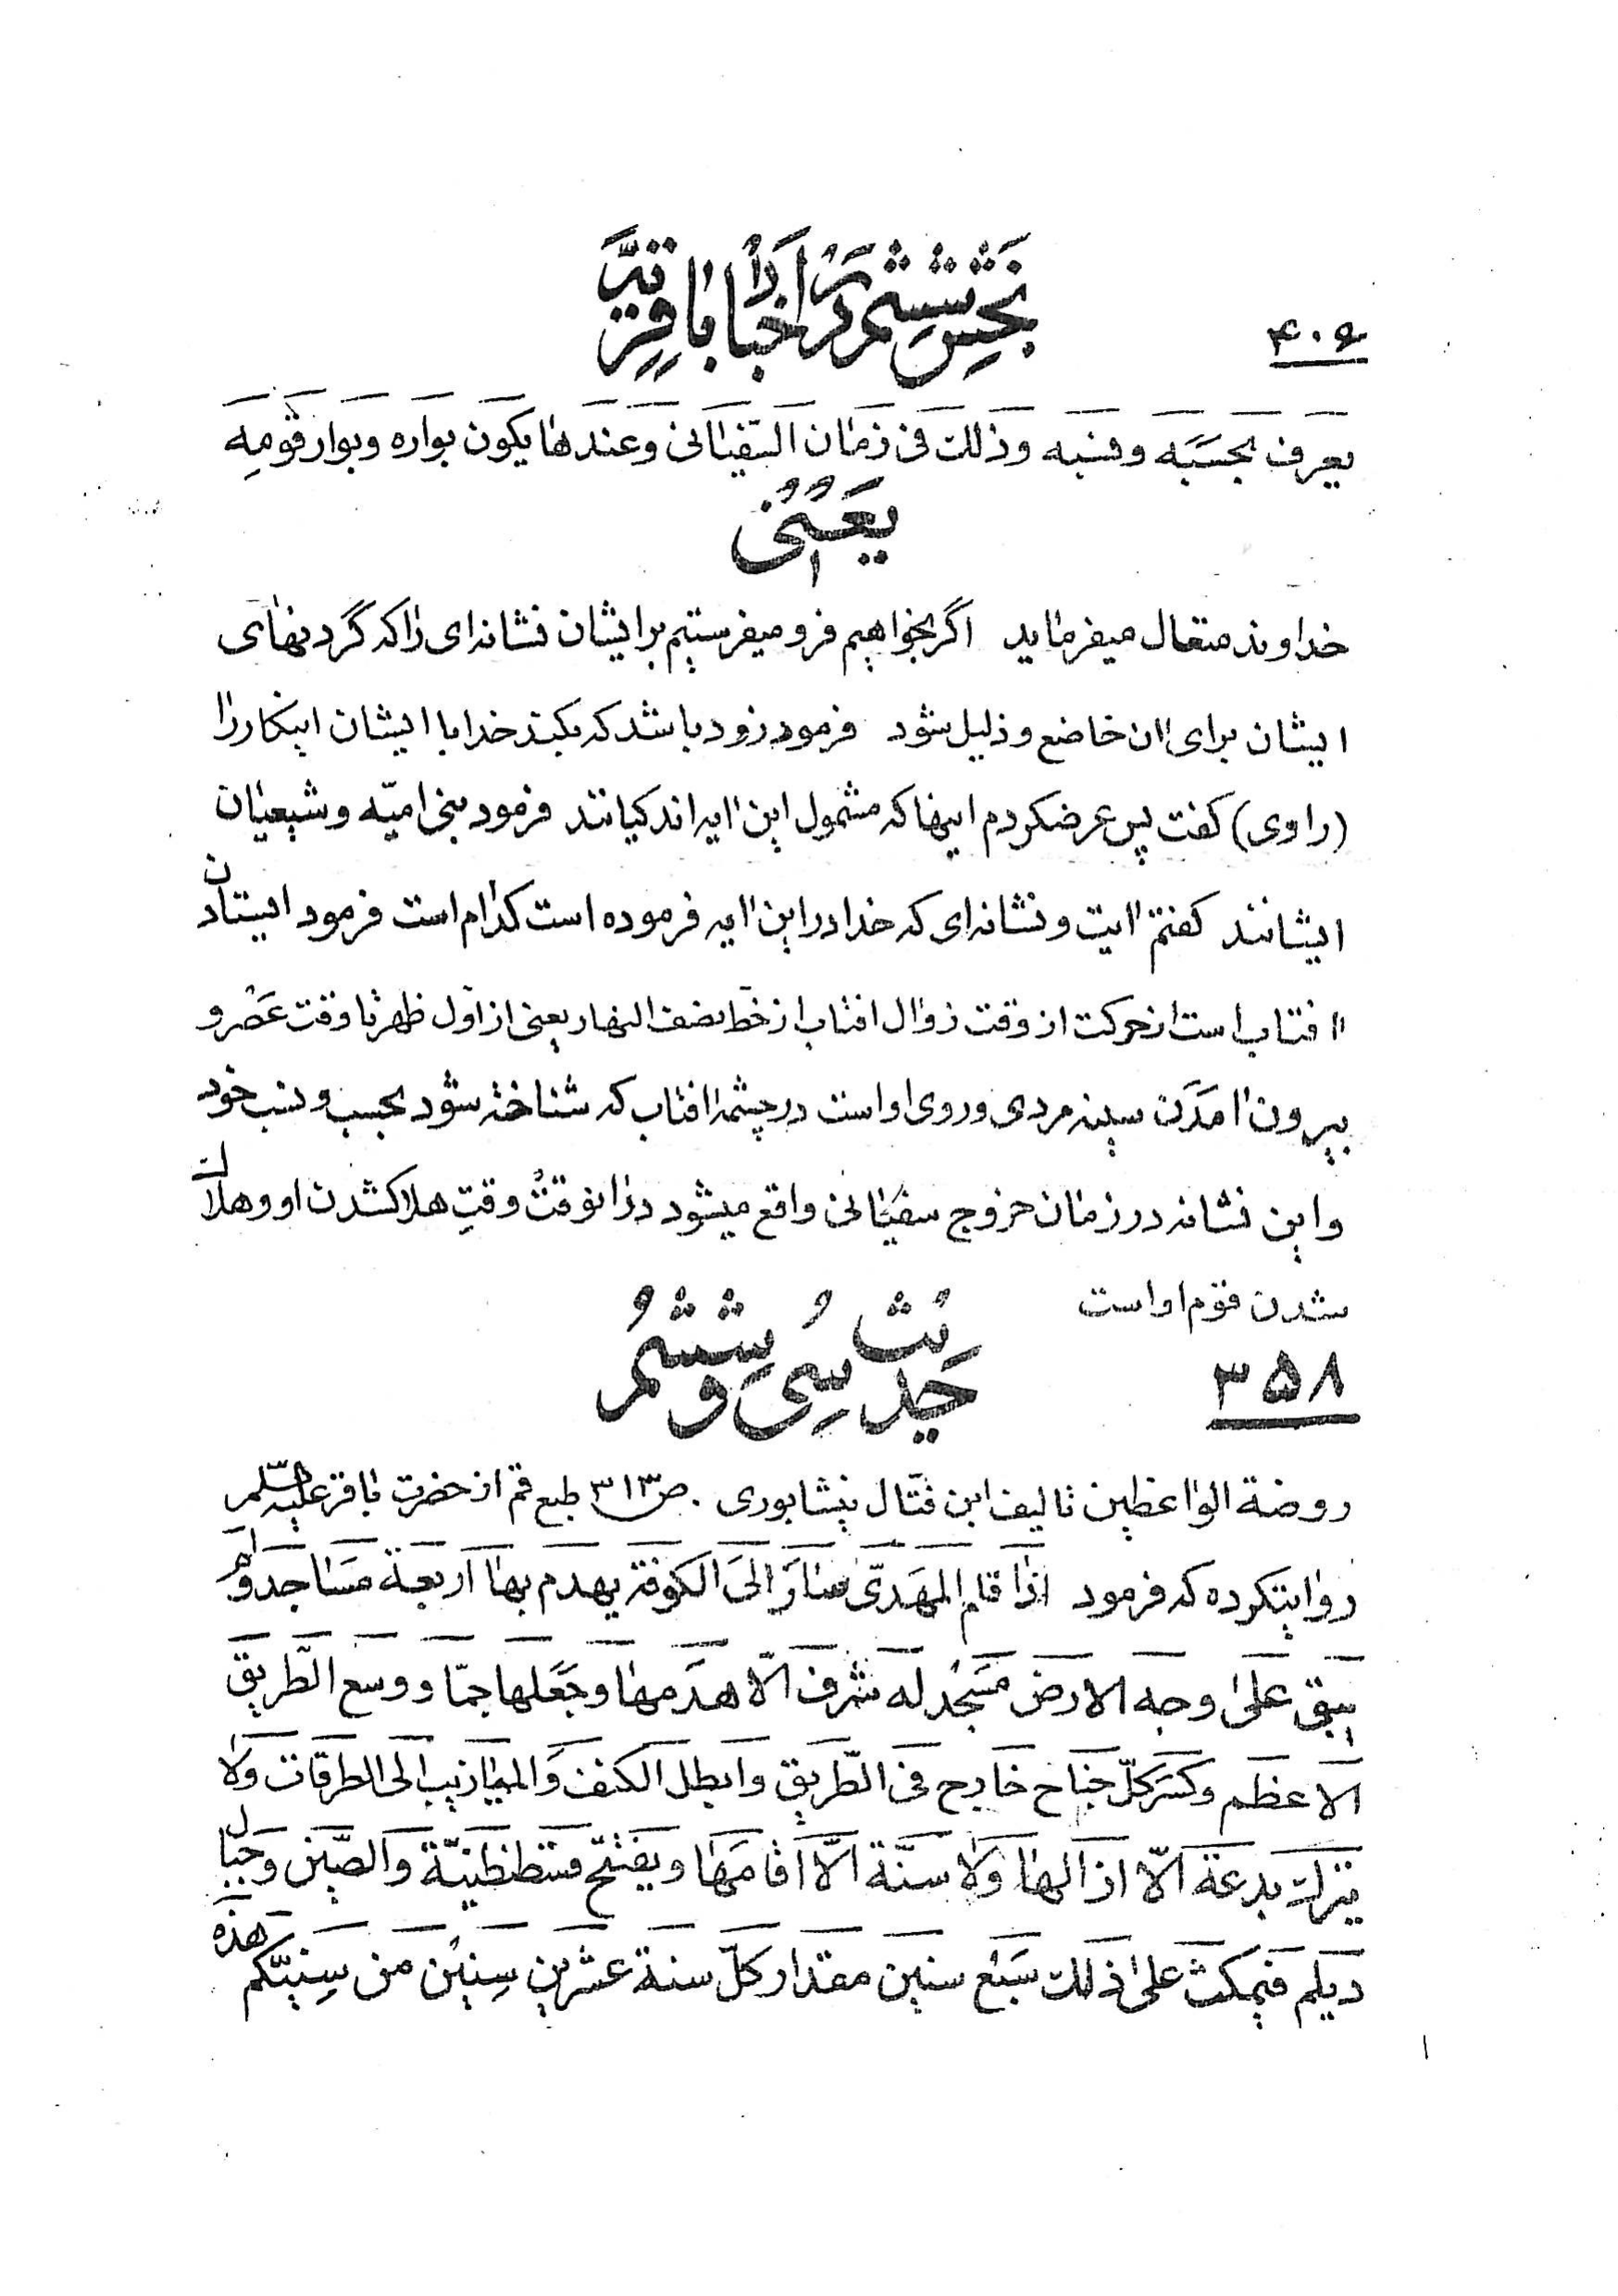 بخش ششم در اخبار باقریّه
۴۰۶
یعرف بحسبه ونسبه وذلك فی زمان السّفیانی وعندها یکون بواره وبوار قومه
یعنی
خداوند متعال میفرماید اگر بخواهیم فرو میفرستیم بر ایشان نشانه‌ای را که گردنهای
ایشان برای آن خاضع و ذلیل شود فرمود زود باشد که بکند خدا با ایشان اینکار را
(راوی) گفت پس عرضکردم اینها که مشمول این آیه اند کیانند فرمود بنی امیّه و شیعیان
ایشانند گفتم آیت و نشانه‌ای که خدا در این آیه فرموده است کدام است فرمود ایستادن
آفتاب است از حرکت از وقت زوال افتاب از خطّ نصف النهار یعنی از اوّل ظهر تا وقت عصر و
بیرون آمدن سینه مردی و روی او است در چشمه آفتاب که شناخته شود بحسب و نسب خود
و این نشانه در زمان خروج سفیانی واقع میشود در آنوقت وقتِ هلاکشدن او و هلاك
شدن قوم او است
۳۵۸
حدیث سی و ششم
روضة الواعظین تالیف ابن فتّال نیشابوری ص ۳۱۳ طبع قم از حضرت باقر علیه السّلم
روایتکرده که فرمود اذا قام المهدیّ سار الی الکوفة یهدم بها اربعة مساجد ولم
یبق علی وجه الارض مسجد له شرف الّا هدمها وجعلها جمّا ووسع الطّریق
الاعظم وکسر کلّ جناح خارج فی الطّریق وابطل الکنف والمیازیب الی الطرقات ولا
یترك بدعة الّا ازالها ولا سنّة الّا اقامها ویفتتح قسطنطنیّة والصّین وجبال
دیلم فیمکث علی ذلك سبع سنین مقدار کلّ سنة عشرین سنین من سنیّکم هذه